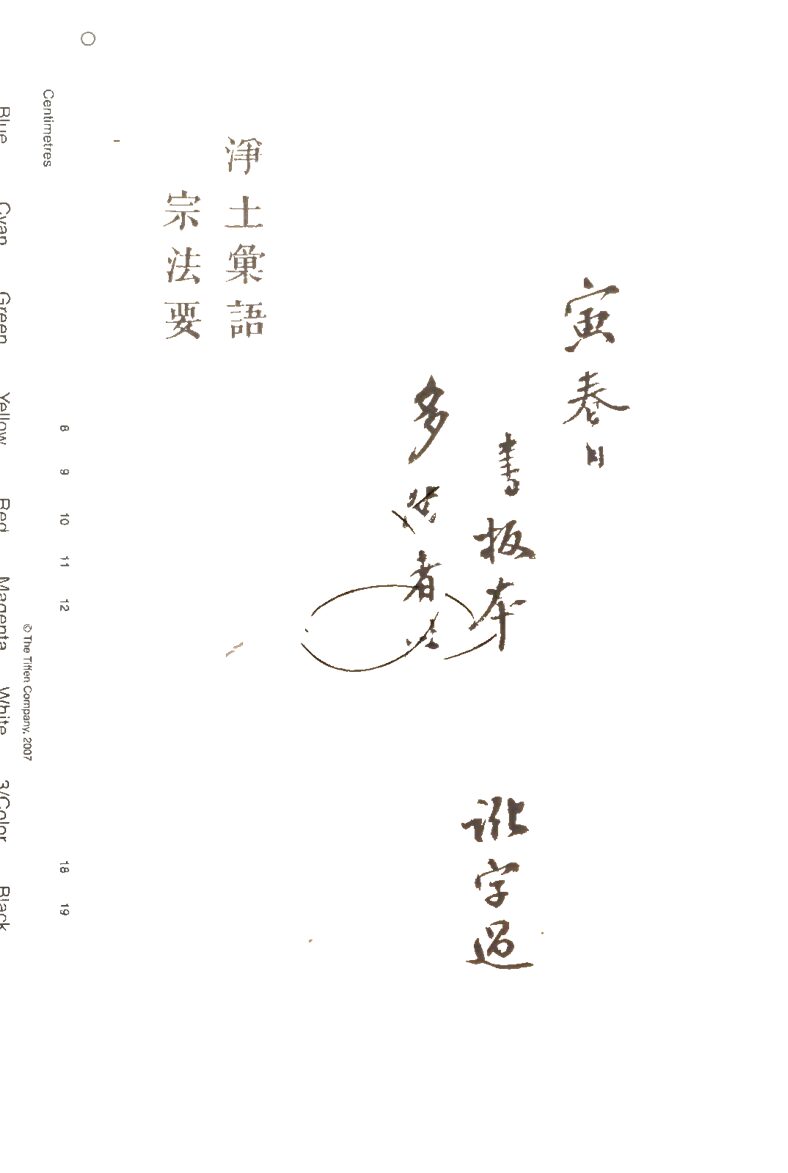 寅春日
書板本訛字過
多者
淨土彙語
宗法要
Centimetres
8 9 10 11 12 18 19
© The Tiffen Company, 2007
Blue Cyan Green Yellow Red Magenta White 3/Color Black